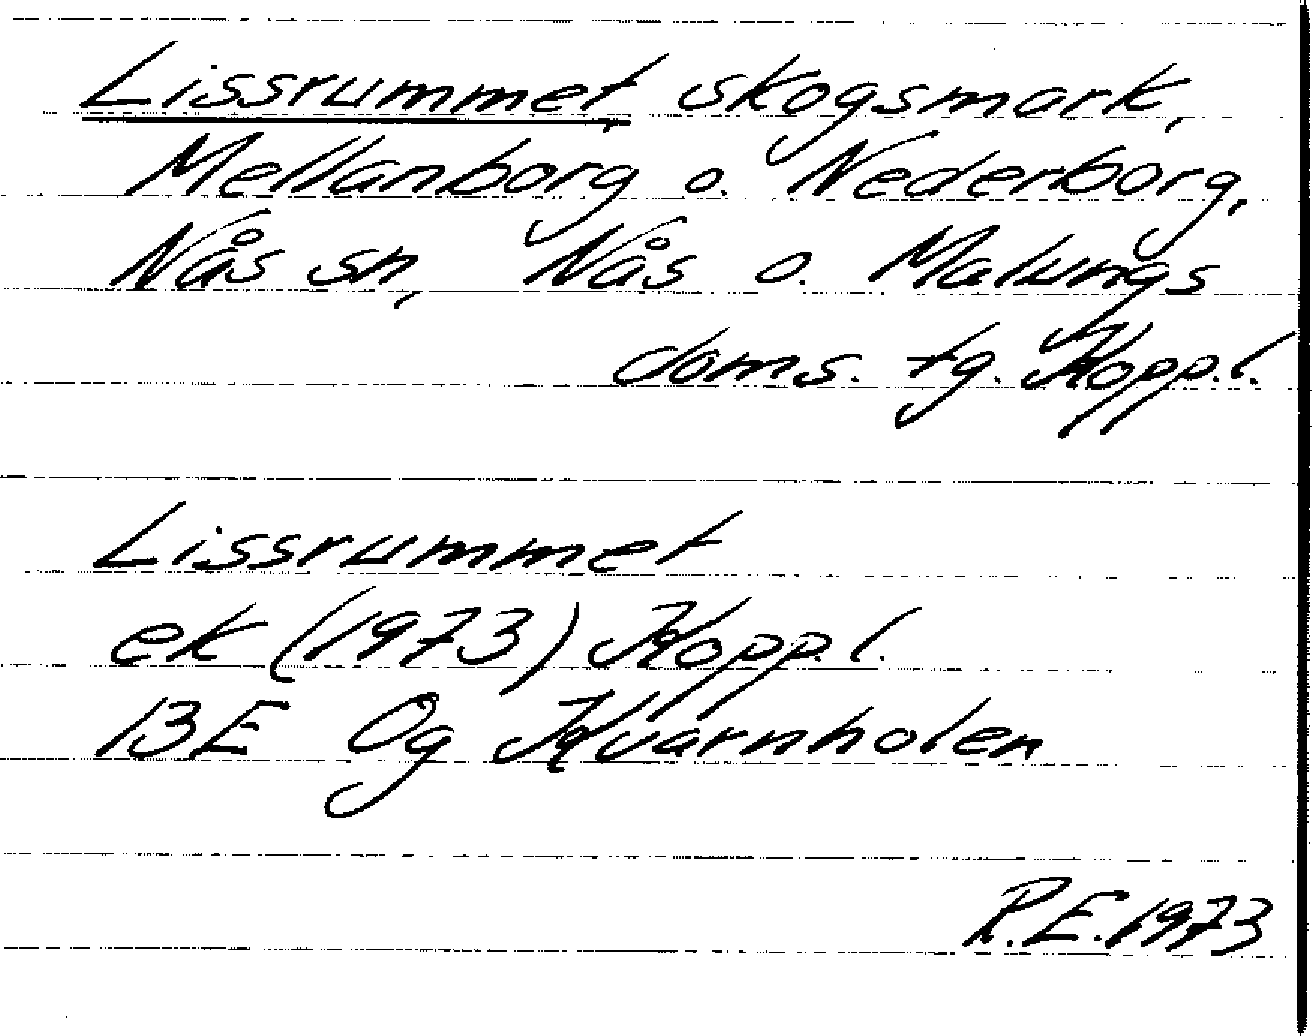 Lissrummet, skogsmark,
Mellanborg o. Nederborg,
Nås sn, Nås o. Malungs
doms. tg. Kopp.l.
Lissrummet
ek (1973) Kopp.l.
13E Og Kvarnholen
R.E. 1973